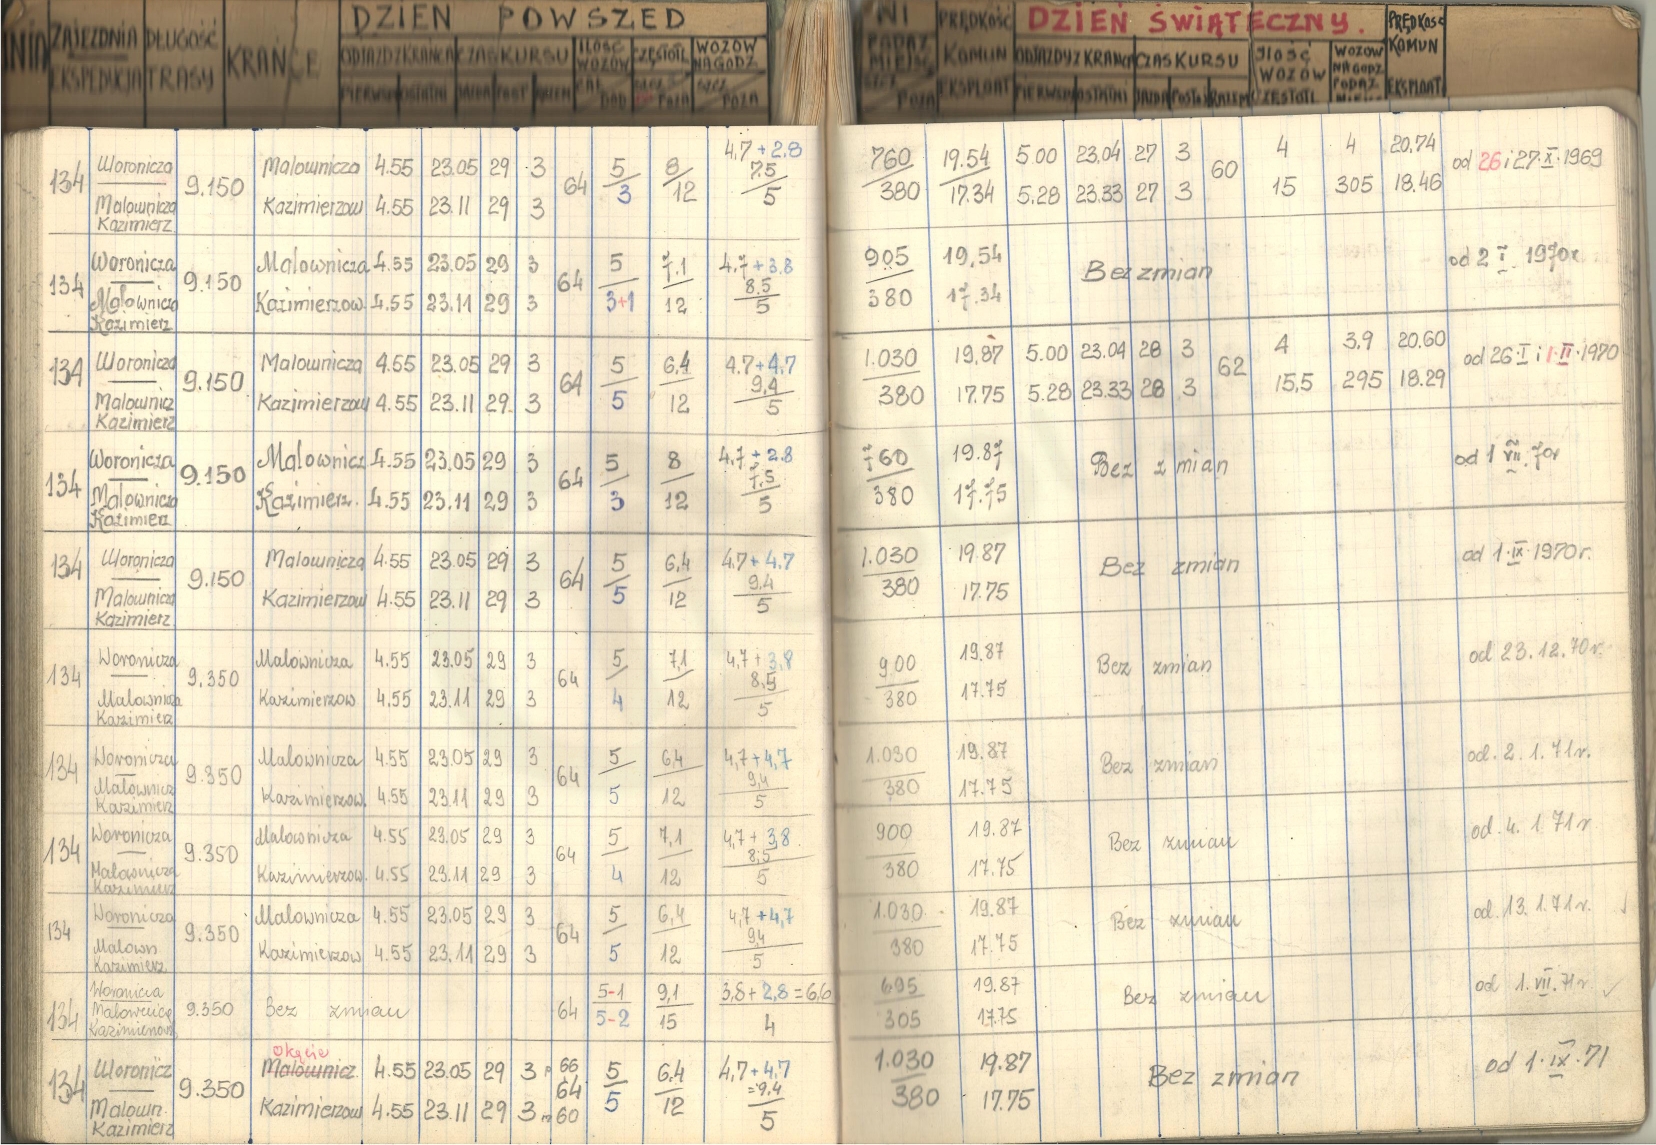 DZIEŃ POWSZED
NIA ZAJEZDNIA DŁUGOŚĆ KRAŃCE ODJAZD Z KRAŃCA CZAS KURSU ILOŚĆ WOZÓW CZĘSTOTL WOZÓW NA GODZ
EKSPEDYCJA TRASY PIERWSZ OSTATNI JAZDA POST RAZEM DOD POZA POZA
134 Woronicza 9.150 Malownicza 4.55 23.05 29 3 64 5 8 4,7+2,8
Malownicza Kazimierzow 4.55 23.11 29 3 3 12 7.5
Kazimierz 5
134 Woronicza 9.150 Malownicza 4.55 23.05 29 3 64 5 7.1 4,7+3,8
Malownicza Kazimierzow 4.55 23.11 29 3 3+1 12 8.5
Kazimierz 5
134 Woronicza 9.150 Malownicza 4.55 23.05 29 3 64 5 6,4 4.7+4,7
Malownicz Kazimierzow 4.55 23.11 29 3 5 12 9,4
Kazimierz 5
134 Woronicza 9.150 Malownicz 4.55 23.05 29 3 64 5 8 4,7+2.8
Malownicza Kazimierz. 4.55 23.11 29 3 3 12 7,5
Kazimierz 5
134 Woronicza 9.150 Malownicza 4.55 23.05 29 3 64 5 6,4 4.7+4.7
Malownicza Kazimierzow 4.55 23.11 29 3 5 12 9.4
Kazimierz 5
134 Woronicza 9.350 Malownicza 4.55 23.05 29 3 64 5 7,1 4,7+3,8
Malownicza Kazimierzow 4.55 23.11 29 3 4 12 8,5
Kazimierz 5
134 Woronicza 9.350 Malownicza 4.55 23.05 29 3 64 5 6,4 4,7+4,7
Malownicz Kazimierzow. 4.55 23.11 29 3 5 12 9,4
Kazimierz 5
134 Woronicza 9.350 Malownicza 4.55 23.05 29 3 64 5 7,1 4,7+3,8
Malownicza Kazimierzow. 4.55 23.11 29 3 4 12 8,5
Kazimierz 5
134 Woronicza 9.350 Malownicza 4.55 23.05 29 3 64 5 6,4 4,7+4,7
Malown Kazimierzow 4.55 23.11 29 3 5 12 9,4
Kazimierz. 5
134 Woronicza 9.350 Bez zmian 64 5-1 9,1 3,8+2,8=6,6
5-2 15 4
Okęcie
134 Woronicz 9.350 Malownicz 4.55 23.05 29 3 66 5 6.4 4,7+4.7
64 =9,4
Malown. Kazimierzow 4.55 23.11 29 3 60 5 12 5
Kazimierz
DZIEŃ ŚWIĄTECZNY.
PRĘDKOŚĆ KOMUN EKSPLOAT ODJAZDY Z KRAŃCA CZAS KURSU ILOŚĆ WOZÓW CZĘSTOTL WOZÓW NA GODZ PODAŻ PRĘDKOŚĆ KOMUN EKSPLOAT
PIERWSZ OSTATNI JAZDA POSTÓJ RAZEM
760 19.54 5.00 23.04 27 3 60 4 4 20.74 od 26 i 27.X.1969
380 17.34 5.28 23.33 27 3 15 305 18.46
905 19,54 Bez zmian od 2 I. 1970r
380 17.34
1.030 19,87 5.00 23.04 28 3 62 4 3,9 20,60 od 26.I i 1.II.1970
380 17.75 5.28 23.33 28 3 15,5 295 18.29
760 19.87 Bez zmian od 1 VII. 70r
380 17.75
1.030 19.87 Bez zmian od 1.IX.1970r.
380 17.75
900 19.87 Bez zmian od 23.12.70r.
380 17.75
1.030 19.87 Bez zmian od. 2.1.71r.
380 17.75
900 19.87 Bez zmian od. 4.1 71r
380 17.75
1.030 19.87 Bez zmian od. 13.1.71r.
380 17.75
695 19.87 Bez zmian od 1.VII.71r
305 17.75
1.030 19.87 Bez zmian od 1.IX.71
380 17.75